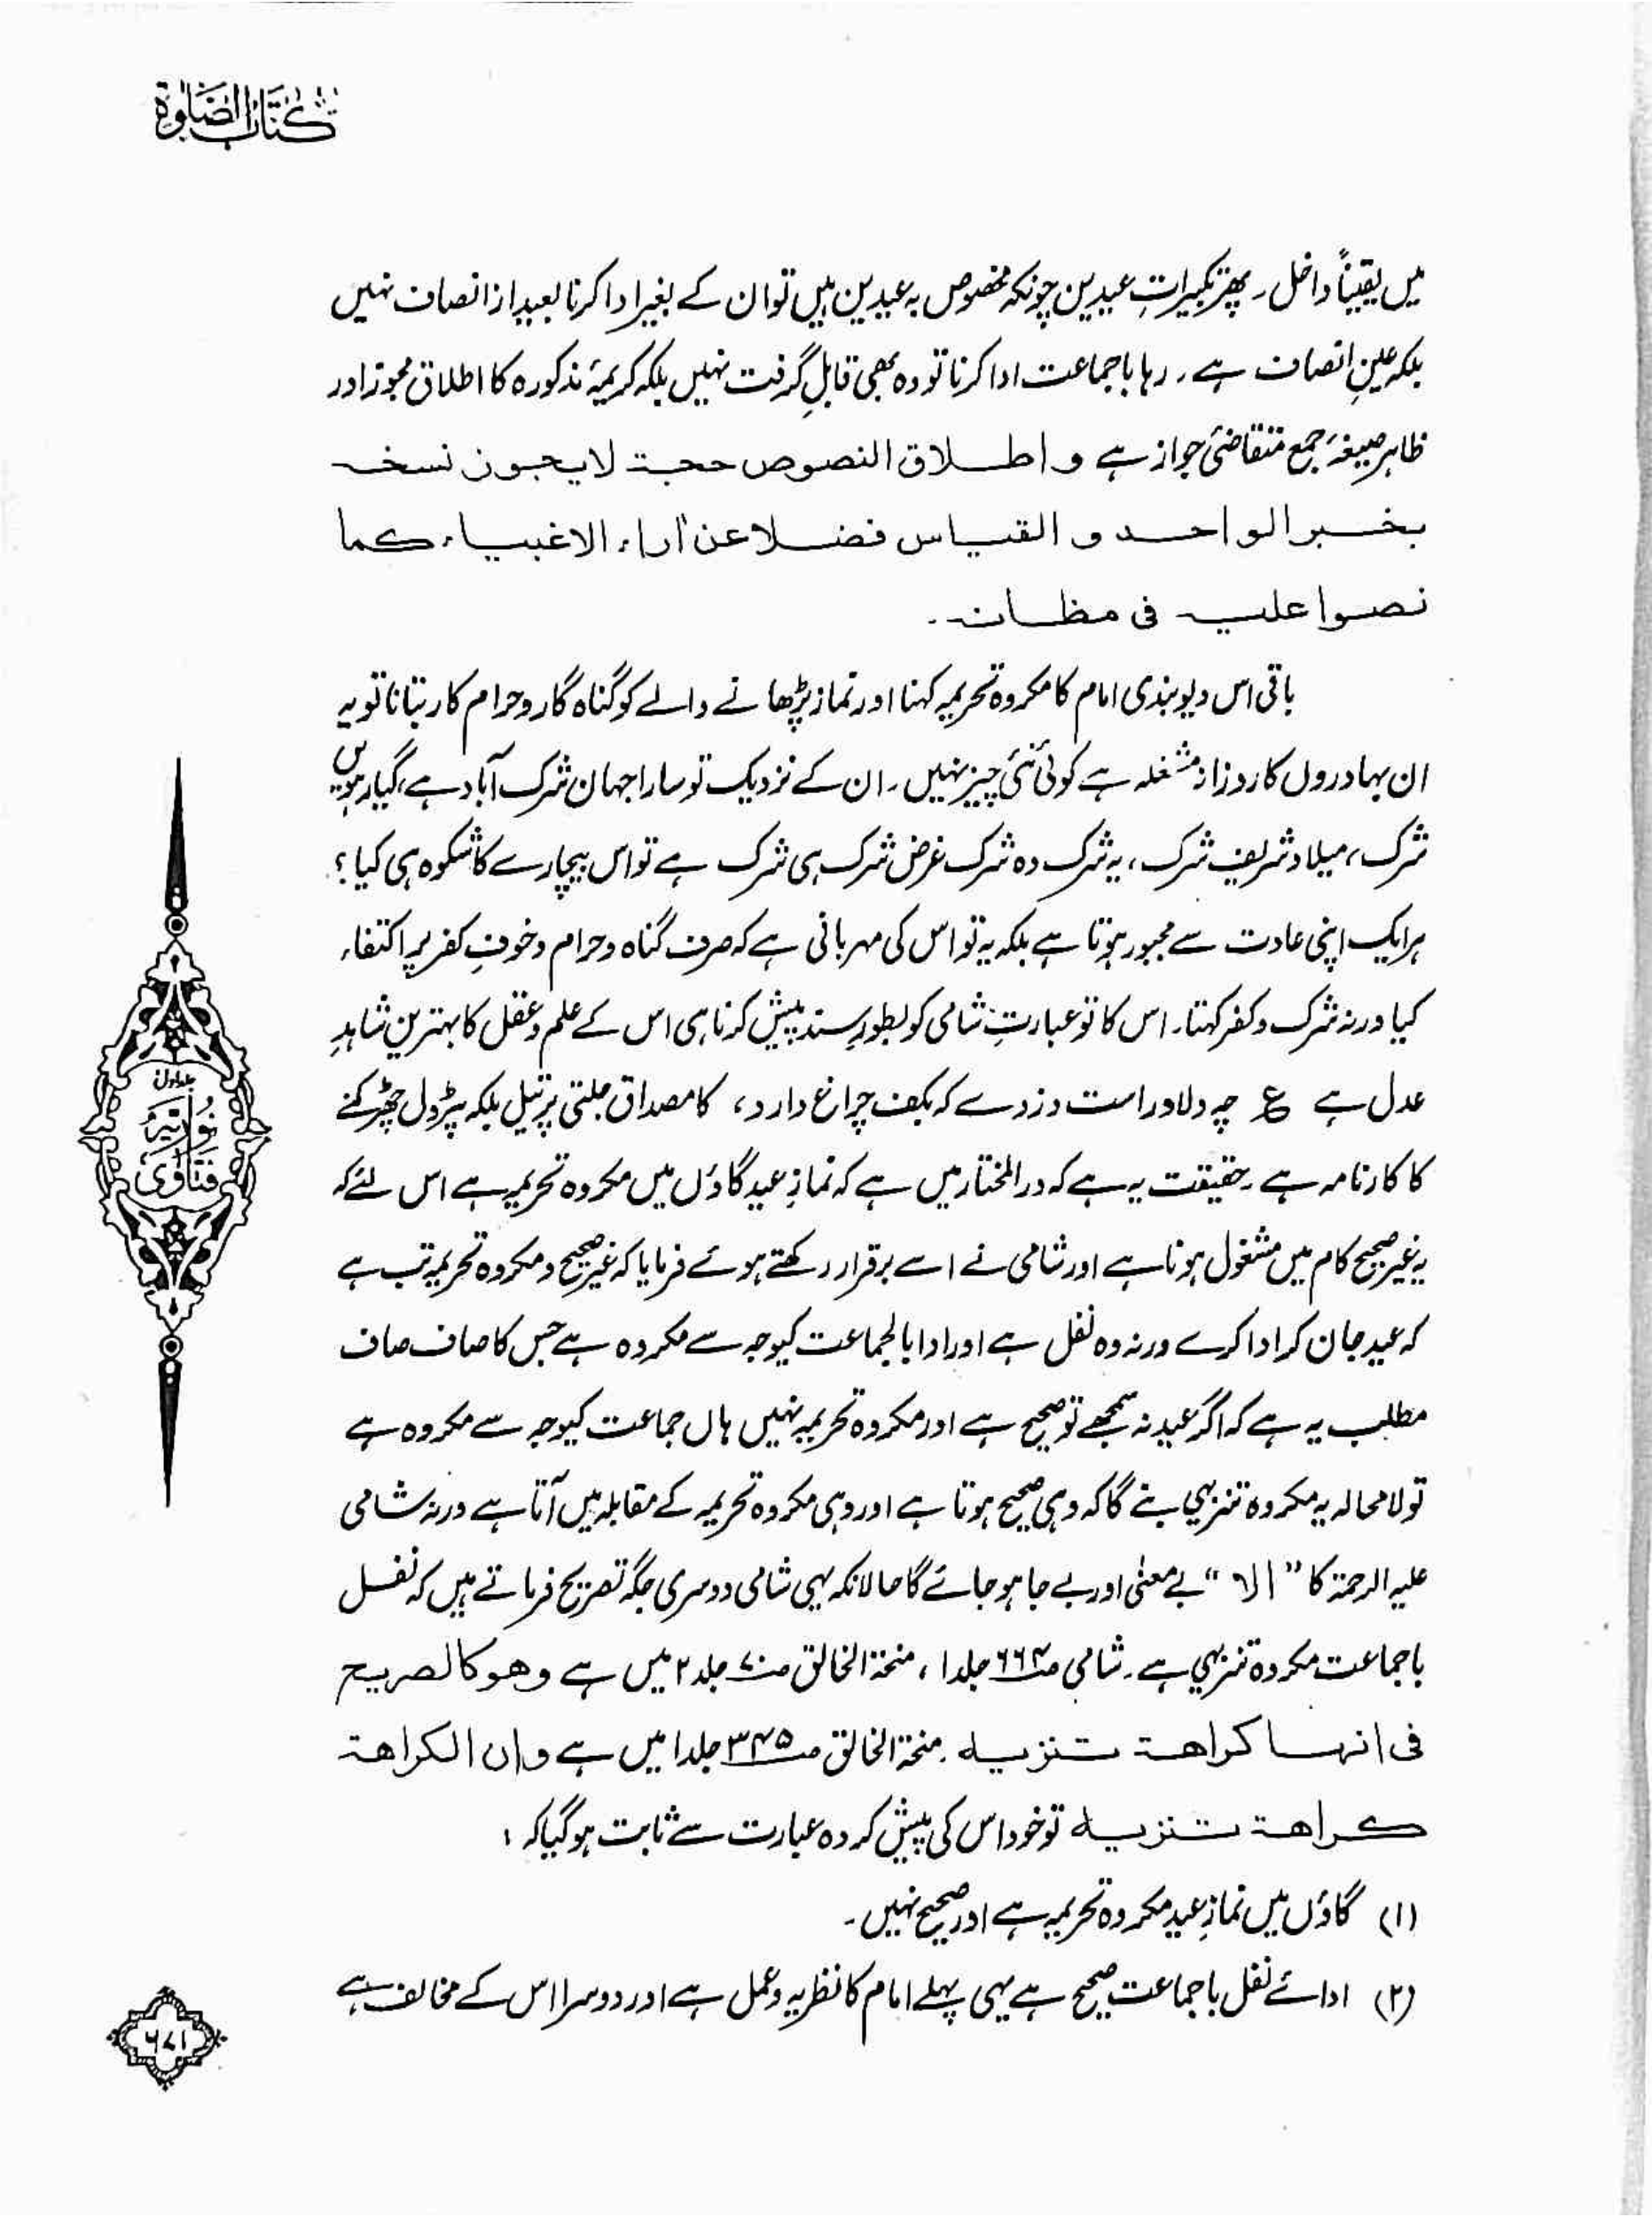 كتاب الصلوة
میں یقیناً داخل۔ پھر تکبیراتِ عیدین چونکہ مخصوص بہ عیدین ہیں تو ان کے بغیر ادا کرنا بعید از انصاف نہیں
بلکہ عینِ انصاف ہے۔ رہا باجماعت ادا کرنا تو وہ بھی قابلِ گرفت نہیں بلکہ کریمۂ مذکورہ کا اطلاق مجوز اور
ظاہر صیغۂ جمع متقاضیٔ جواز ہے و اطلاق النصوص حجة لا یجوز نسخه
بخبر الواحد و القیاس فضلا عن آراء الاغبیاء کما
نصوا علیه فی مظانه۔
باقی اس دیوبندی امام کا مکروہ تحریمہ کہنا اور نماز پڑھانے والے کو گناہ گار و حرام کار بتانا تو یہ
ان بہادروں کا روزانہ مشغلہ ہے کوئی نئی چیز نہیں۔ ان کے نزدیک تو سارا جہان شرک آباد ہے، گیارہویں
شرک، میلاد شریف شرک، یہ شرک وہ شرک غرض شرک ہی شرک ہے تو اس بیچارے کا شکوہ ہی کیا؟
ہر ایک اپنی عادت سے مجبور ہوتا ہے بلکہ یہ تو اس کی مہربانی ہے کہ صرف گناہ و حرام و خوفِ کفر پر اکتفاء
کیا ورنہ شرک و کفر کہتا۔ اس کا تو عبارتِ شامی کو بطورِ سند پیش کرنا ہی اس کے علم و عقل کا بہترین شاہدِ
عدل ہے ع چہ دلاور است دزدے کہ بکف چراغ دارد، کا مصداق جلتی پر تیل بلکہ پٹرول چھڑکنے
کا کارنامہ ہے۔ حقیقت یہ ہے کہ در المختار میں ہے کہ نمازِ عید گاؤں میں مکروہ تحریمہ ہے اس لئے کہ
یہ غیر صحیح کام میں مشغول ہونا ہے اور شامی نے اسے برقرار رکھتے ہوئے فرمایا کہ غیر صحیح و مکروہ تحریمہ تب ہے
کہ عید جان کر ادا کرے ورنہ وہ نفل ہے اور ادا بالجماعت کیوجہ سے مکروہ ہے جس کا صاف صاف
مطلب یہ ہے کہ اگر عید نہ سمجھے تو صحیح ہے اور مکروہ تحریمہ نہیں ہاں جماعت کیوجہ سے مکروہ ہے
تو لا محالہ یہ مکروہ تنزیہی بنے گا کہ وہی صحیح ہوتا ہے اور وہی مکروہ تحریمہ کے مقابلہ میں آتا ہے ورنہ شامی
علیہ الرحمۃ کا "الا" بے معنیٰ اور بے جا ہو جائے گا حالانکہ یہی شامی دوسری جگہ تصریح فرماتے ہیں کہ نفل
باجماعت مکروہ تنزیہی ہے۔ شامی ص۶۶۴ جلد۱، منحۃ الخالق ص۷۰ جلد۲ میں ہے وهو کالصریح
فی انها کراهة تنزیه۔ منحۃ الخالق ص۳۴۵ جلد۱ میں ہے و ان الکراهة
کراهة تنزیه تو خود اس کی پیش کردہ عبارت سے ثابت ہو گیا کہ:
(۱) گاؤں میں نمازِ عید مکروہ تحریمہ ہے اور صحیح نہیں۔
(۲) ادائے نفل باجماعت صحیح ہے یہی پہلے امام کا نظریہ و عمل ہے اور دوسرا اس کے مخالف ہے
جلد اول
نوریہ
فتاویٰ
۶۷۱